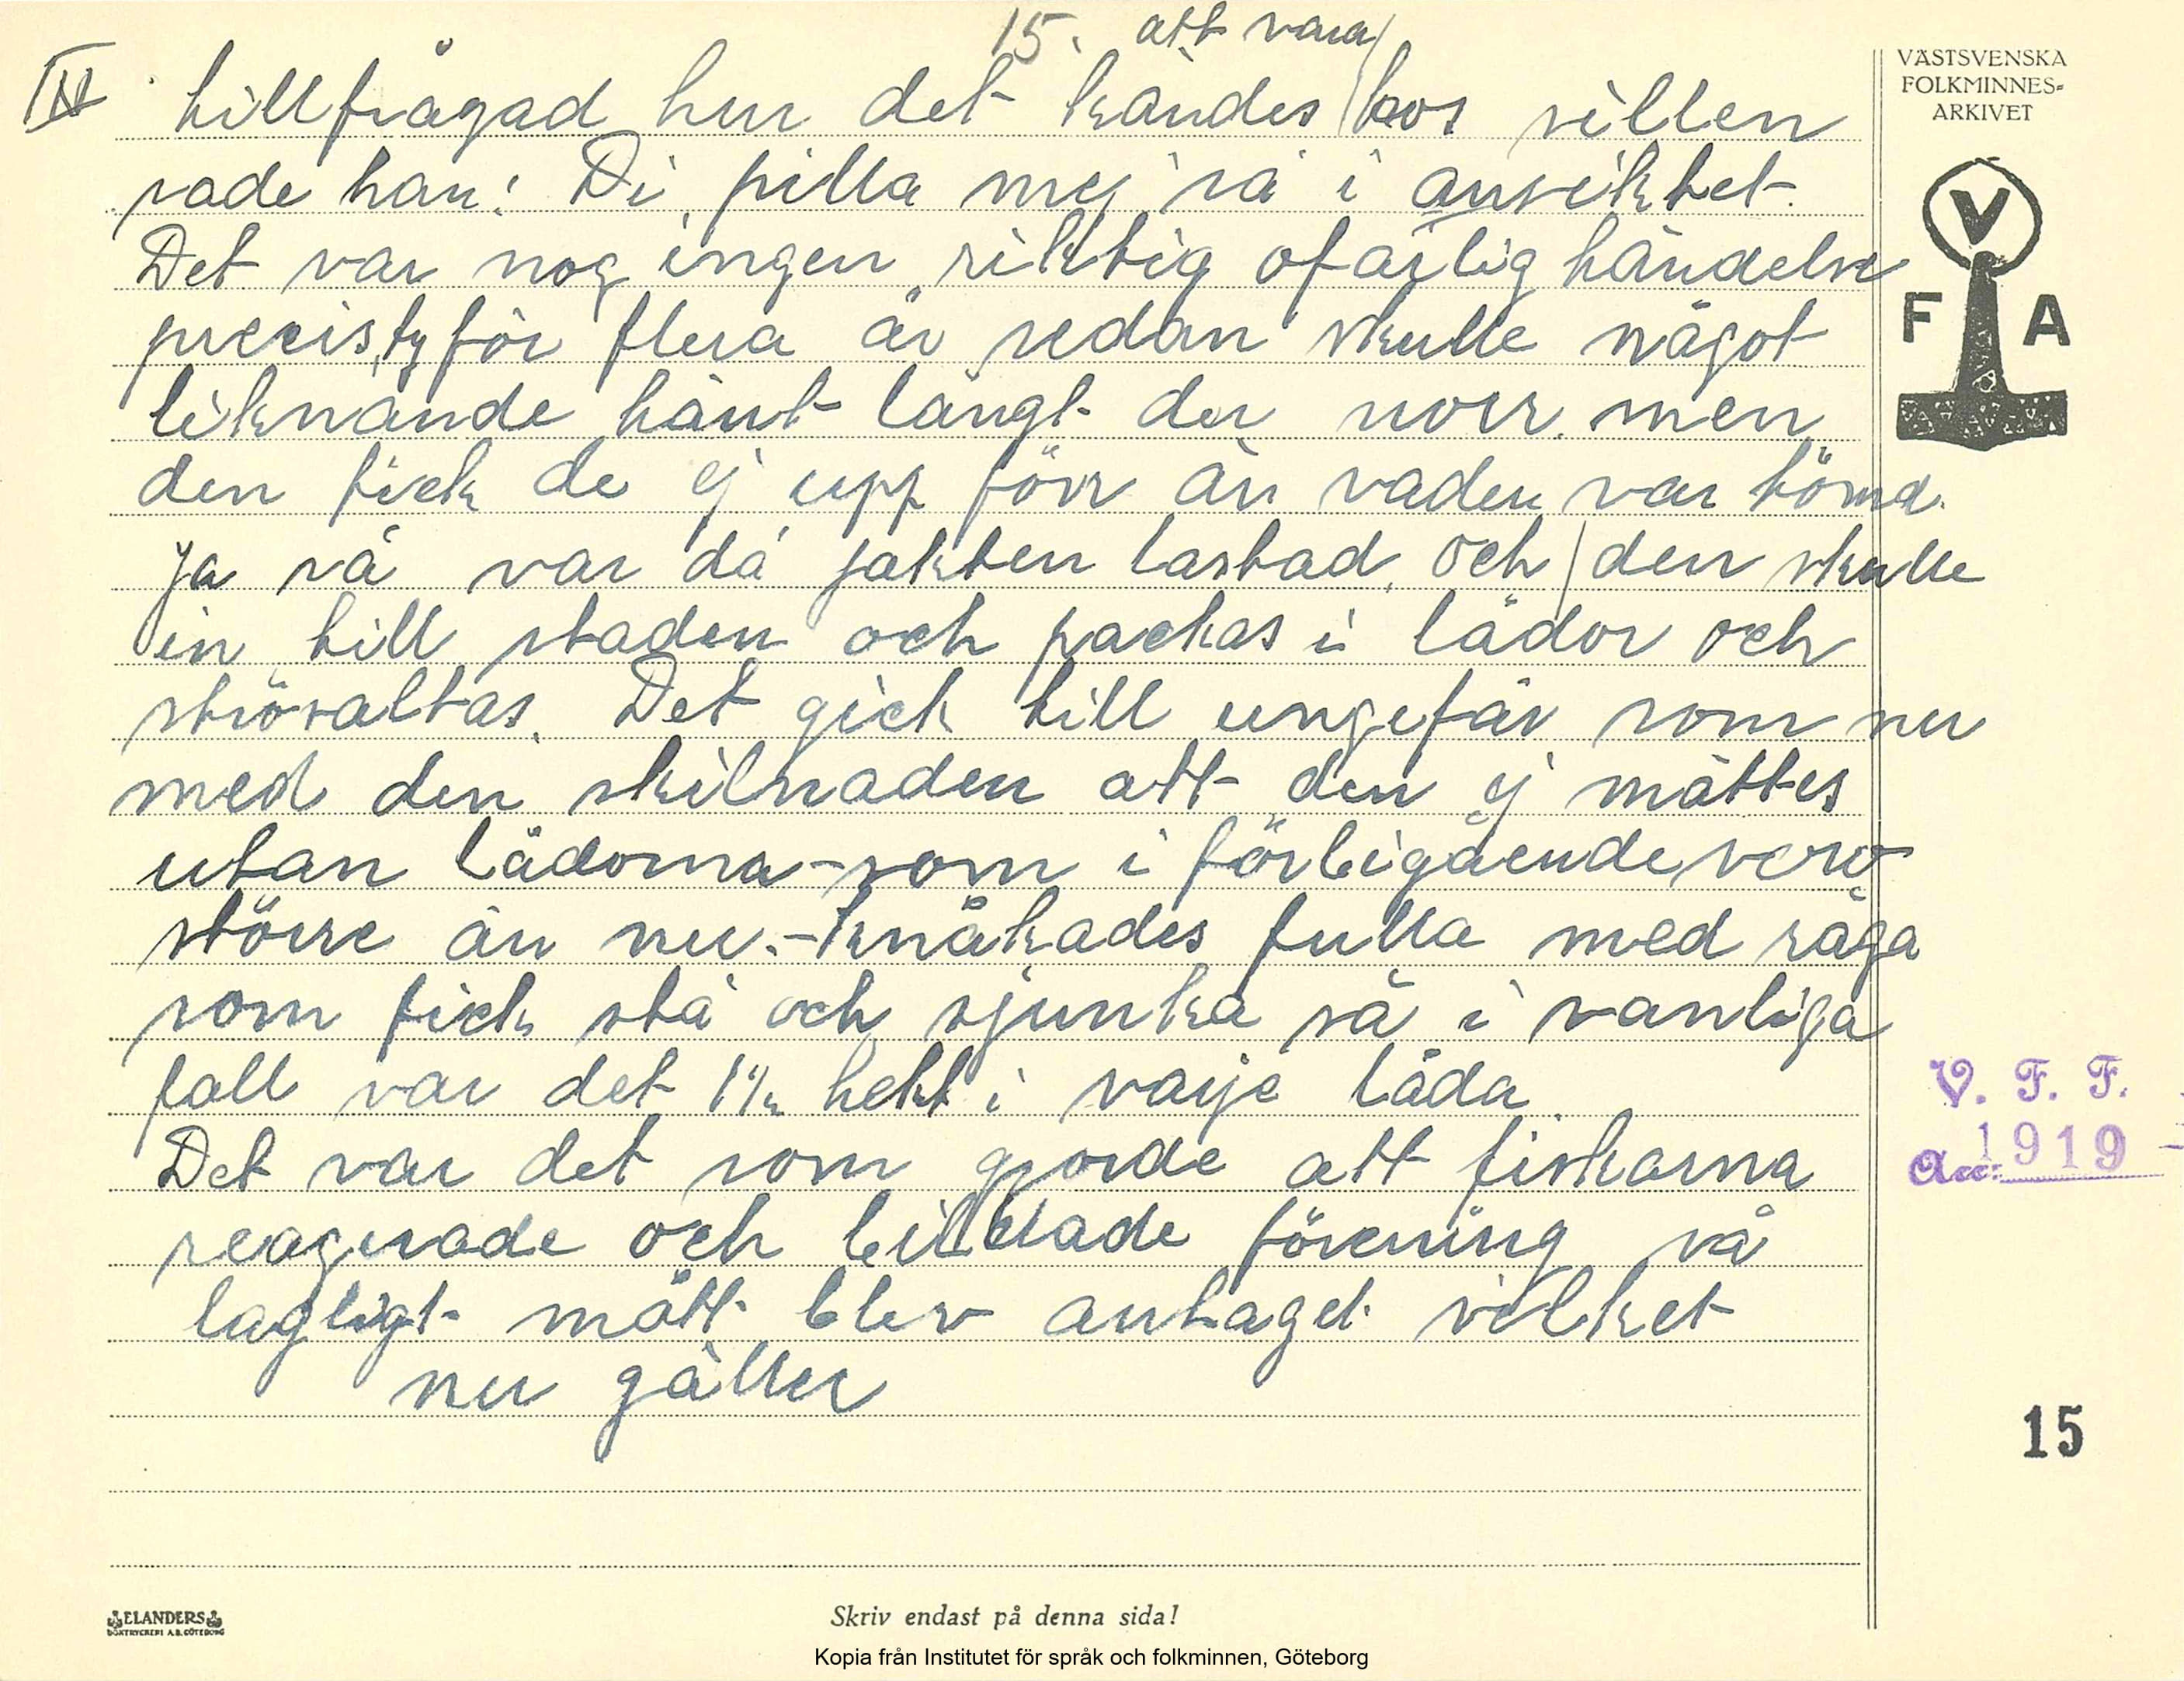 15. att vara
IV tillfrågad hur det kändes hos sillen
sade han: Di pilla mej så i ansiktet.
Det var nog ingen riktig ofarlig händelse
precis, ty för flera år sedan skulle något
liknande hänt långt der norr men
den fick de ej upp förr än vaden var tömd.
Ja så var då jakten lastad och den skulle
in till staden och packas i lådor och
strösaltas. Det gick till ungefär som nu
med den skilnaden att den ej mättes
utan lådorna - som i förbigående voro
större än nu. - knåkades fulla med råga
som fick stå och sjunka så i vanliga
fall var det 1½ hekt i varje låda.
Det var det som gjorde att fiskarna
reagerade och bildade förening så
lagligt mått blev antaget vilket
nu gäller
VÄSTSVENSKA
FOLKMINNES-
ARKIVET
V
F A
V. F. F.
Acc: 1919
15
ELANDERS
BOKTRYCKERI A.B. GÖTEBORG
Skriv endast på denna sida!
Kopia från Institutet för språk och folkminnen, Göteborg